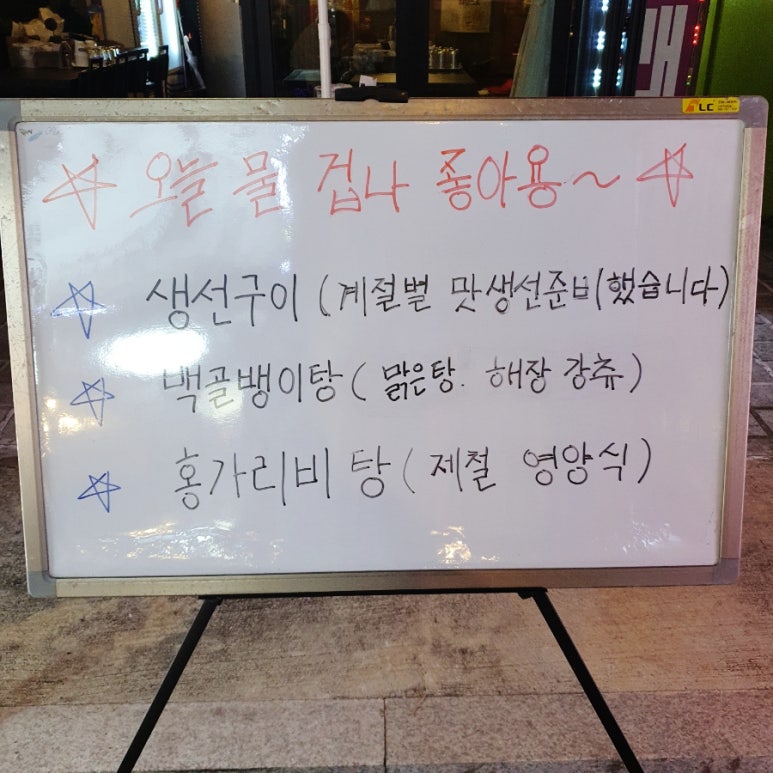 ☆ 오늘 물 겁나 좋아용~ ☆
☆ 생선구이 (계절별 맛생선준비했습니다)
☆ 백골뱅이탕 (맑은탕. 해장 강츄)
☆ 홍가리비 탕 (제철 영양식)
LC